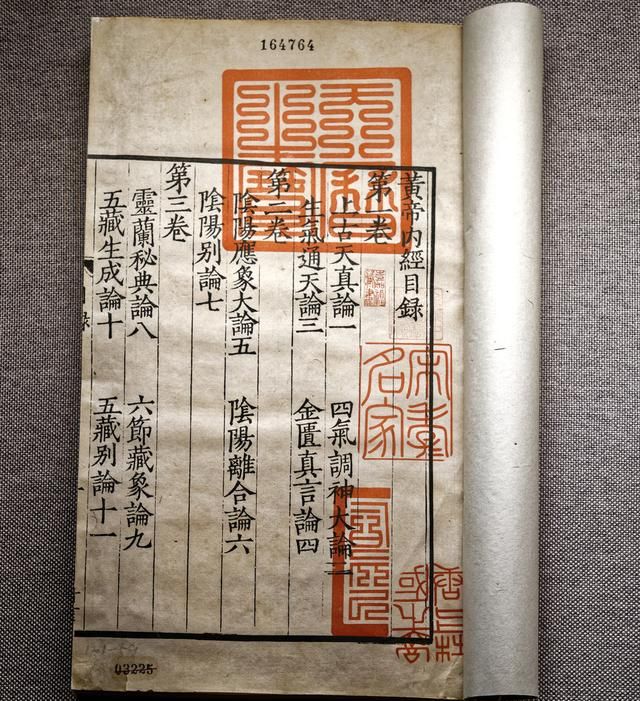 164764
黃帝內經目錄
第一卷
上古天真論一　四氣調神大論二
生氣通天論三　金匱真言論四
第二卷
陰陽應象大論五　陰陽離合論六
陰陽别論七
第三卷
靈蘭秘典論八　六節藏象論九
五藏生成論十　五藏别論十一
錄
03225